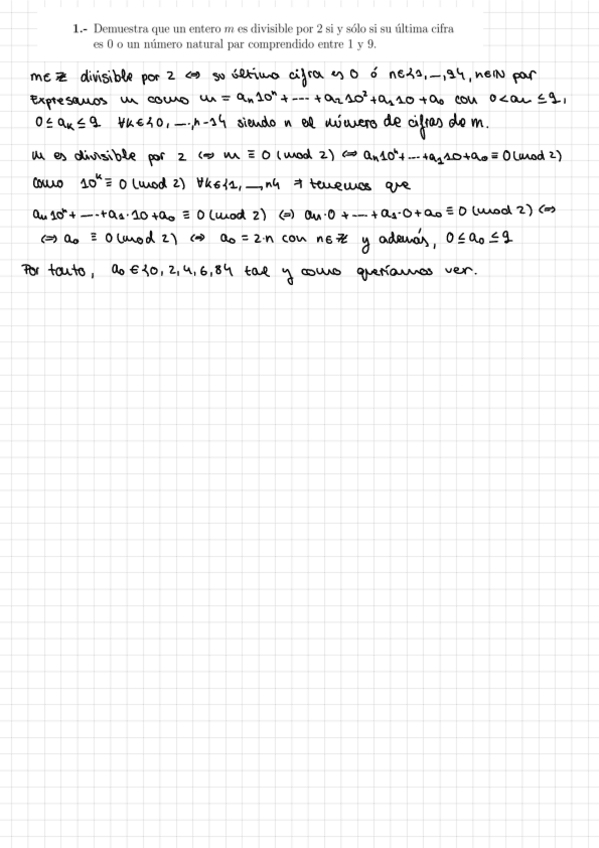 1.- Demuestra que un entero m es divisible por 2 si y sólo si su última cifra
es 0 o un número natural par comprendido entre 1 y 9.
m∈ℤ divisible por 2 ⇔ su última cifra es 0 ó n∈{1,—,9}, n∈ℕ par
Expresamos m como m = aₙ10ⁿ + --- + a₂10² + a₁10 + a₀ con 0 < aₙ ≤ 9,
0 ≤ aₖ ≤ 9 ∀k∈{0, —, n-1} siendo n el número de cifras de m.
m es divisible por 2 ⇔ m ≡ 0 (mod 2) ⇔ aₙ10ⁿ + --- + a₁10 + a₀ ≡ 0 (mod 2)
Como 10ᵏ ≡ 0 (mod 2) ∀k∈{1, —, n} ⇒ tenemos que
aₙ10ⁿ + --- + a₁·10 + a₀ ≡ 0 (mod 2) ⇔ aₙ·0 + --- + a₁·0 + a₀ ≡ 0 (mod 2) ⇔
⇔ a₀ ≡ 0 (mod 2) ⇔ a₀ = 2·n con n∈ℤ y además, 0 ≤ a₀ ≤ 9
Por tanto, a₀ ∈ {0, 2, 4, 6, 8} tal y como queríamos ver.